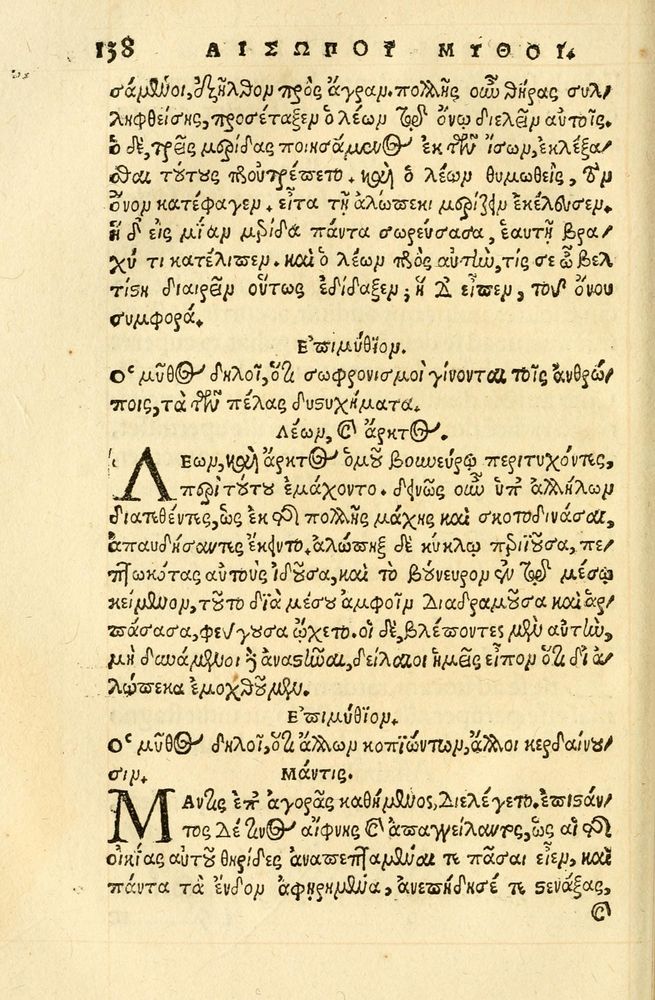 138 ΑΙΣΩΠΟΥ ΜΥΘΟΙ.
σάμενοι, ἐξῆλθον πρὸς ἄγραν. πολλῆς οὖν θήρας συλ/
ληφθείσης, προσέταξεν ὁ λέων τῷ ὄνῳ διελεῖν αὐτοῖς.
ὁ δὲ, τρεῖς μερίδας ποιησάμενος ἐκ τῶν ἴσων, ἐκλέξα/
σθαι τούτους προὐτρέπετο. καὶ ὁ λέων θυμωθεὶς, τὸν
ὄνον κατέφαγεν. εἶτα τῇ ἀλώπεκι μερίζειν ἐκέλευσεν.
ἡ δ' εἰς μίαν μερίδα πάντα σωρεύσασα, ἑαυτῇ βρα/
χύ τι κατέλιπεν. καὶ ὁ λέων πρὸς αὐτὴν, τίς σε ὦ βελ
τίστη διαιρεῖν οὕτως ἐδίδαξεν; ἡ δ' εἶπεν, τοῦ ὄνου
συμφορά.
Ἐπιμύθιον.
Ὁ μῦθος δηλοῖ, ὅτι σωφρονισμοὶ γίνονται τοῖς ἀνθρώ/
ποις, τὰ τῶν πέλας δυστυχήματα.
Λέων, καὶ ἄρκτος.
Λέων, καὶ ἄρκτος ὁμοῦ βουνεύρῳ περιτυχόντες,
περὶ τούτου ἐμάχοντο. δεινῶς οὖν ὑπ' ἀλλήλων
διατεθέντες, ὡς ἐκ τῆς πολλῆς μάχης καὶ σκοτοδινάσαι,
ἀπαυδήσαντες ἔκειντο. ἀλώπηξ δὲ κύκλῳ περιιοῦσα, πε/
πτωκότας αὐτοὺς ἰδοῦσα, καὶ τὸ βούνευρον ἐν τῷ μέσῳ
κείμενον, τοῦτο διὰ μέσου ἀμφοῖν διαδραμοῦσα καὶ ἁρ/
πάσασα, φεύγουσα ᾤχετο. οἱ δὲ, βλέποντες μὲν αὐτὴν,
μὴ δυνάμενοι δ' ἀναστῆναι, δείλαιοι ἡμεῖς εἶπον ὅτι δι' ἀ/
λώπεκα ἐμοχθοῦμεν.
Ἐπιμύθιον.
Ὁ μῦθος δηλοῖ, ὅτι ἄλλων κοπιώντων, ἄλλοι κερδαίνου/
σιν. Μάντις.
Μάντις ἐπ' ἀγορᾶς καθήμενος, διελέγετο. ἐπιστάν/
τος δέ τινος αἴφνης καὶ ἀπαγγείλαντος, ὡς αἱ τῆς
οἰκίας αὐτοῦ θυρίδες ἀναπεπταμέναι τε πᾶσαι εἶεν, καὶ
πάντα τὰ ἔνδον ἀφῃρημένα, ἀνεπήδησέ τε στενάξας,
καὶ